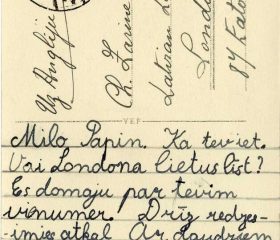 Uz Angliju
Ch. Zarine
Latvian L
Londo
87 Eato
VEF
Milo Papin. Ka tev iet.
Vai Londonā lietus līst?
Es domāju par tevim
vienumer. Drīz redzes-
-imies atkal. Ar daudziem